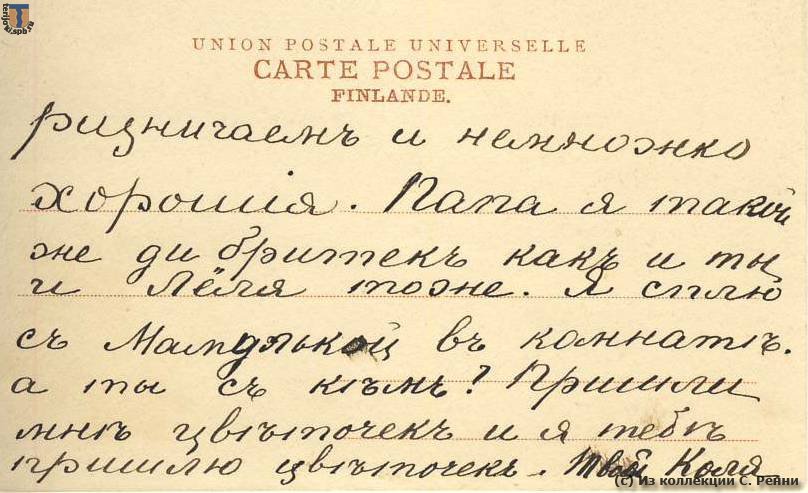 terijoki.spb.ru
UNION POSTALE UNIVERSELLE
CARTE POSTALE
FINLANDE.
ризничаемъ и немножко
хорошія. Папа я такой
же ди бришекъ какъ и ты
и Лёля тоже. Я сплю
съ Мамулькой въ комнатѣ.
а ты съ кѣмъ? Пришли
мнѣ цвѣточекъ и я тебѣ
пришлю цвѣточекъ. Твой Коля
(c) Из коллекции С. Ренни